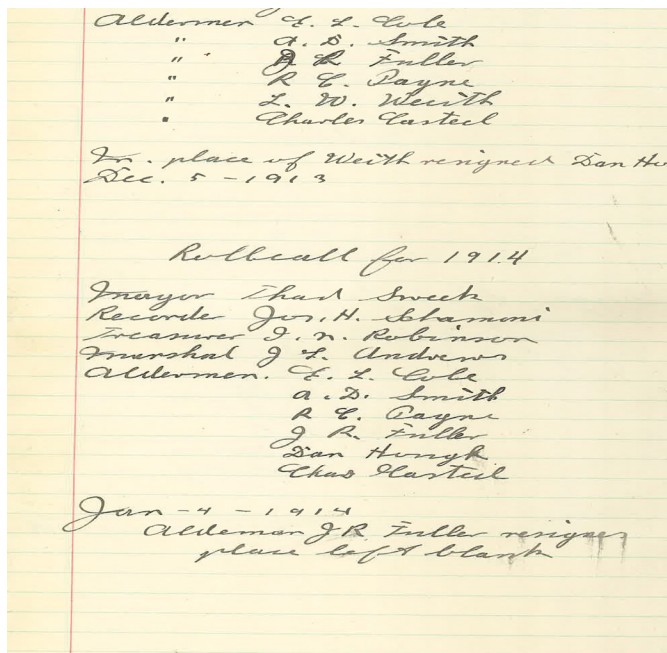 Aldermen E. L. Cole
" A. D. Smith
" " J R Fuller
" R E. Payne
" L. W. Weith
" Charles Casteel
In. place of Weith resigned Dan
Dec. 5 - 1913
Rollcall for 1914
Mayor Thad Sweek
Recorder Jos. H. Schamoni
Treasurer J. N. Robinson
Marshal J L. Andrews
Aldermen. E. L. Cole
A. D. Smith
R E. Payne
J R. Fuller
Dan Hough
Chas Casteel
Jan - 4 - 1914
Aldeman J R. Fuller resignes
place left blank